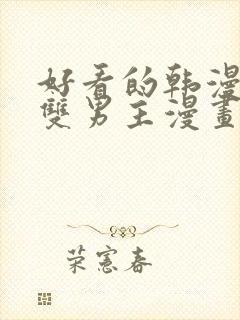 好看的韩漫
雙男主漫畫
荣宪春